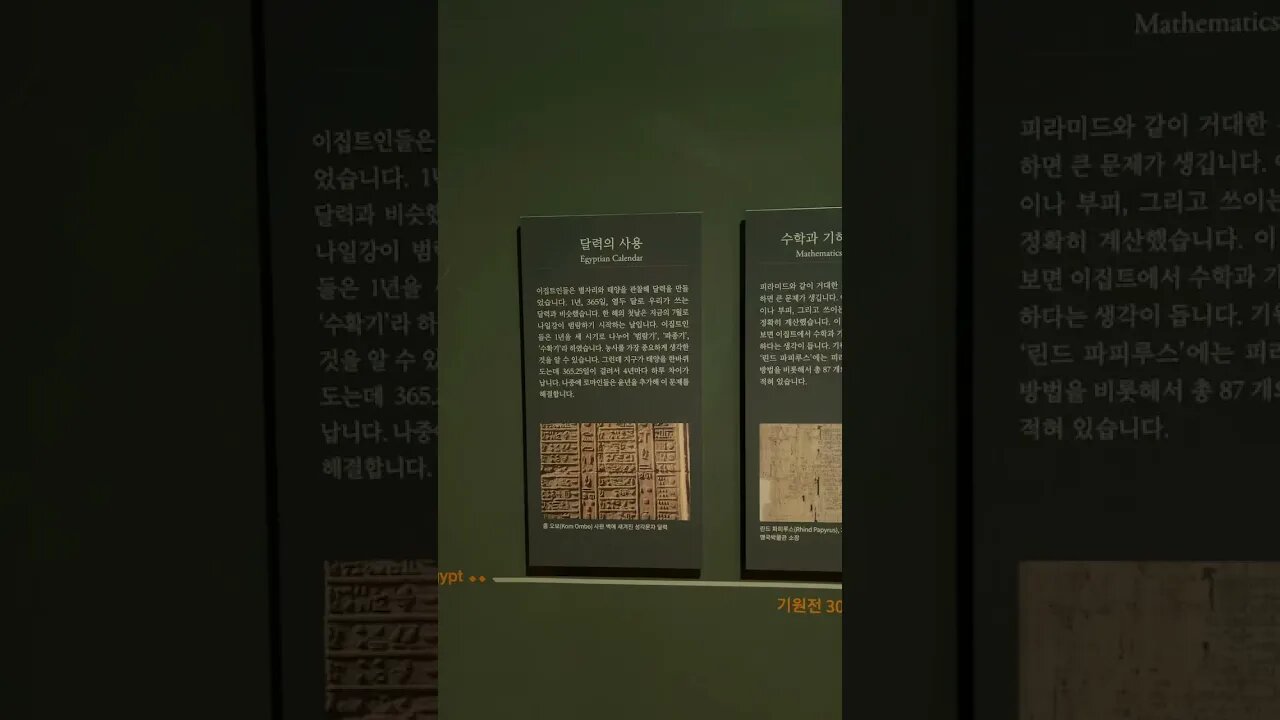 달력의 사용
Egyptian Calendar
이집트인들은 별자리와 태양을 관찰해 달력을 만들
었습니다. 1년, 365일, 열두 달로 우리가 쓰는
달력과 비슷했습니다. 한 해의 첫날은 지금의 7월로
나일강이 범람하기 시작하는 날입니다. 이집트인
들은 1년을 세 시기로 나누어 '범람기', '파종기',
'수확기'라 하였습니다. 농사를 가장 중요하게 생각한
것을 알 수 있습니다. 그런데 지구가 태양을 한바퀴
도는데 365.25일이 걸려서 4년마다 하루 차이가
납니다. 나중에 로마인들은 윤년을 추가해 이 문제를
해결합니다.
콤 오보(Kom Ombo) 사원 벽에 새겨진 성각문자 달력
수학과 기하
Mathematics
피라미드와 같이 거대한
하면 큰 문제가 생깁니다.
이나 부피, 그리고 쓰이는
정확히 계산했습니다. 이
보면 이집트에서 수학과 기
하다는 생각이 듭니다. 기원
'린드 파피루스'에는 피라
방법을 비롯해서 총 87 개의
적혀 있습니다.
린드 파피루스(Rhind Papyrus),
영국박물관 소장
ypt
기원전 30
이집트인들은
었습니다. 1년
달력과 비슷했
나일강이 범람
들은 1년을
'수확기'라 하
것을 알 수 있
도는데 365.2
납니다. 나중에
해결합니다.
Mathematics
피라미드와 같이 거대한
하면 큰 문제가 생깁니다.
이나 부피, 그리고 쓰이는
정확히 계산했습니다. 이
보면 이집트에서 수학과 기
하다는 생각이 듭니다. 기원
'린드 파피루스'에는 피라
방법을 비롯해서 총 87 개의
적혀 있습니다.